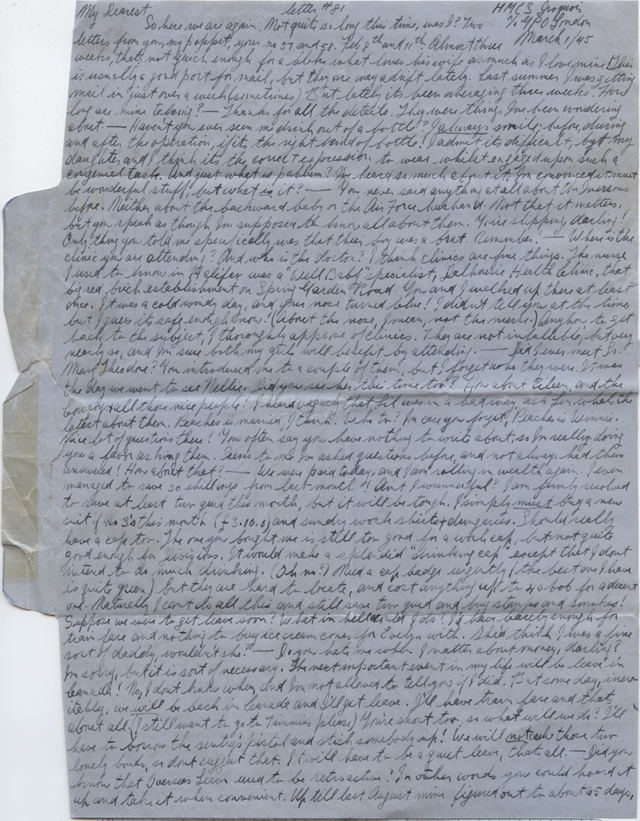 My Dearest, letter #81 HMCS Iroquois
So here we are again. Not quite so long this time, was I? Two c/o GPO London
letters from you, my poppet, yours no 57 and 58. Feb 8th and 11th. Almost three March 1/45
weeks, that's not quick enough for a bloke what loves his wife as much as I love mine. This
is usually a good port for mail, but they are way adrift lately. Last summer I was getting
mail in just over a week (sometimes) But lately its been averaging three weeks. How
long are mine taking? — Thanks for all the details. They were things I've been wondering
about. — Haven't you ever seen me drink out of a bottle? I always smile; before, during
and after the operation, if it's the right kind of bottle! I admit its difficult, but my
daughter and I think its the correct expression to wear whilst engaged upon such a
congenial task. And just what is pablum? I've heard so much about it I'm convinced it must
be wonderful stuff, but what is it? — You never said anything at all about the
before. Neither about the backward baby or the Air Force husband. Not that it matters,
but you speak as though I'm supposed to know all about them. You're slipping, darling!
Only thing you told me specifically was that their boy was a brat. Remember? — Where is the
clinic you are attending? And who is the doctor? I think clinics are fine things. The nurse
I used to know in Halifax was a "Well Baby" specialist, Dalhousie Health Clinic, that
big red brick establishment on Spring Garden Road. You and I walked up there at least
once. It was a cold windy day, and your nose turned blue! I didn't tell you at the time
but I guess its safe enough now! (about the nose, I mean, not the nurse.) Anyhow to get
back to the subject, I thoroughly approve of clinics. They are not infallible, but very
nearly so, and I'm sure both my girls will benefit by attending. — Did I ever meet Dr.
Mary Theodore? You introduced me to a couple of them, but I forget who they were. It was
the day we went to see Nellie. Did you see her this time too? You about Eileen, and the
and all those nice people? I heard vaguely that Lil was in a bad way, so what's the
latest about them. Peaches is married, I think. Who to? In case you forget, Peaches is Winnie.
Nice lot of questions there! You often say you have nothing to write about, so I'm really doing
you a favor asking them. Seems to me I've asked questions before, and not always had them
answered! How about that? — We were paid today, and I am rolling in wealth again. I even
managed to save 30 shillings from last month! Ain't I wunnerful? I am firmly resolved
to save at least two quid this month, but it will be tough. I simply must buy a new
suit of No 3's this month (£3.10.0) and sundry work shirts & dungarees. Should really
have a cap too. The one you bought me is still too good for a work cap, but not quite
good enough for Divisions. It would make a splendid "drinking cap" except that I don't
intend to do much drinking. (Oh no?) Need a cap badge urgently (the best one I have
is quite green) but they are hard to locate, and cost anything up to 40 bob for a decent
one. Naturally I can't do all this and still save two quid and buy stamps and smokes!
Suppose we were to get leave soon? What in hell would I do? I'd have barely enough for
train fare and nothing to buy ice cream cones for Evelyn with. She'd think I was a fine
sort of daddy, wouldn't she? — Do you hate me when I natter about money, darling?
I'm sorry, but it is sort of necessary. The next important event in my life will be leave in
Canada! No, I don't know when and I'm not allowed to tell you if I did. But some day, inev-
itably, we will be back in Canada and I'll get leave. I'll have train fare and that's
about all. (I still want to go to Timmins please) You're short too so what will we do? I'll
have to borrow the sentry's pistol and stick somebody up! We will not cash those two
lonely bonds, so don't suggest that. It will have to be a quiet leave, that's all. — Did you
know that Overseas Leave used to be retroactive? In other words you could hoard it
up and take it when convenient. Up till last August mine figured out to about 45 days,